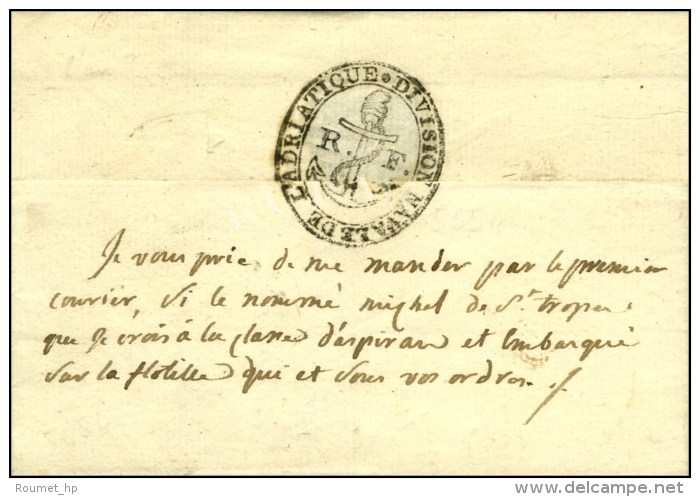 DIVISION NAVALE DE L'ADRIATIQUE
R. F.
Je vous prie de me mander par le premier
courier, si le nommé michel de St. tropes
que Je crois à la Classe d'aspiran et Embarqué
Sur la flotille qui et Sous vos ordres. /
Roumet_hp
www.delcampe.net